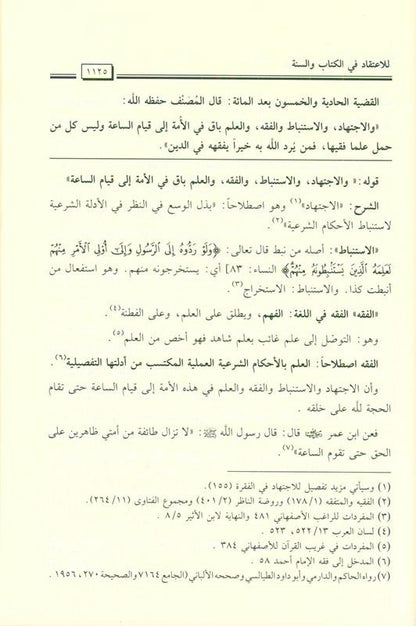 للاعتقاد في الكتاب والسنة
١١٢٥
القضية الحادية والخمسون بعد المائة: قال المُصَنّف حفظه الله:
«والاجتهاد، والاستنباط والفقه، والعلم باق في الأمة إلى قيام الساعة وليس كل من
حمل علما فقيها، فمن يُرد الله به خيراً يفقهه في الدين».
قوله: «والاجتهاد، والاستنباط، والفقه، والعلم باق في الأمة إلى قيام الساعة»
الشرح: «الاجتهاد»(١) وهو اصطلاحاً: «بذل الوسع في النظر في الأدلة الشرعية
لاستنباط الأحكام الشرعية»(٢).
«الاستنباط»: أصله من نبط قال تعالى: ﴿وَلَوْ رَدُّوهُ إِلَى الرَّسُولِ وَإِلَىٰ أُوْلِي الْأَمْرِ مِنْهُمْ
لَعَلِمَهُ الَّذِينَ يَسْتَنۢبِطُونَهُ مِنْهُمْ﴾ [النساء: ٨٣] أي: يستخرجونه منهم. وهو استفعال من
أنبطت كذا. والاستنباط: الاستخراج(٣).
«الفقه» الفقه في اللغة: الفهم، ويطلق على العلم، وعلى الفطنة(٤).
وهو: التوصّل إلى علم غائب بعلم شاهد فهو أخص من العلم(٥).
الفقه اصطلاحاً: العلم بالأحكام الشرعية العملية المكتسب من أدلتها التفصيلية(٦).
وأن الاجتهاد والاستنباط والفقه والعلم في هذه الأمة إلى قيام الساعة حتى تقام
الحجة لله على خلقه .
فعن ابن عمر ﵁ قال: قال رسول الله ﷺ: «لا تزال طائفة من أمتي ظاهرين على
الحق حتى تقوم الساعة»(٧).
(١) وسيأتي مزيد تفصيل للاجتهاد في الفقرة (١٥٥).
(٢) الفقيه والمتفقه (١/ ١٧٨) وروضة الناظر (٢/ ٤٠١) ومجموع الفتاوى (١١/ ٢٦٤).
(٣) المفردات للراغب الأصفهاني ٤٨١ والنهاية لابن الأثير ٥/ ٨.
(٤) لسان العرب ١٣/ ٥٢٢، ٥٢٣ .
(٥) المفردات في غريب القرآن للأصفهاني ٣٨٤ .
(٦) المدخل إلى فقه الإمام أحمد ٥٨ .
(٧) رواه الحاكم والدارمي وأبو داود الطيالسي وصححه الألباني (الجامع ٧١٦٤ والصحيحة ٢٧٠، ١٩٥٦ .